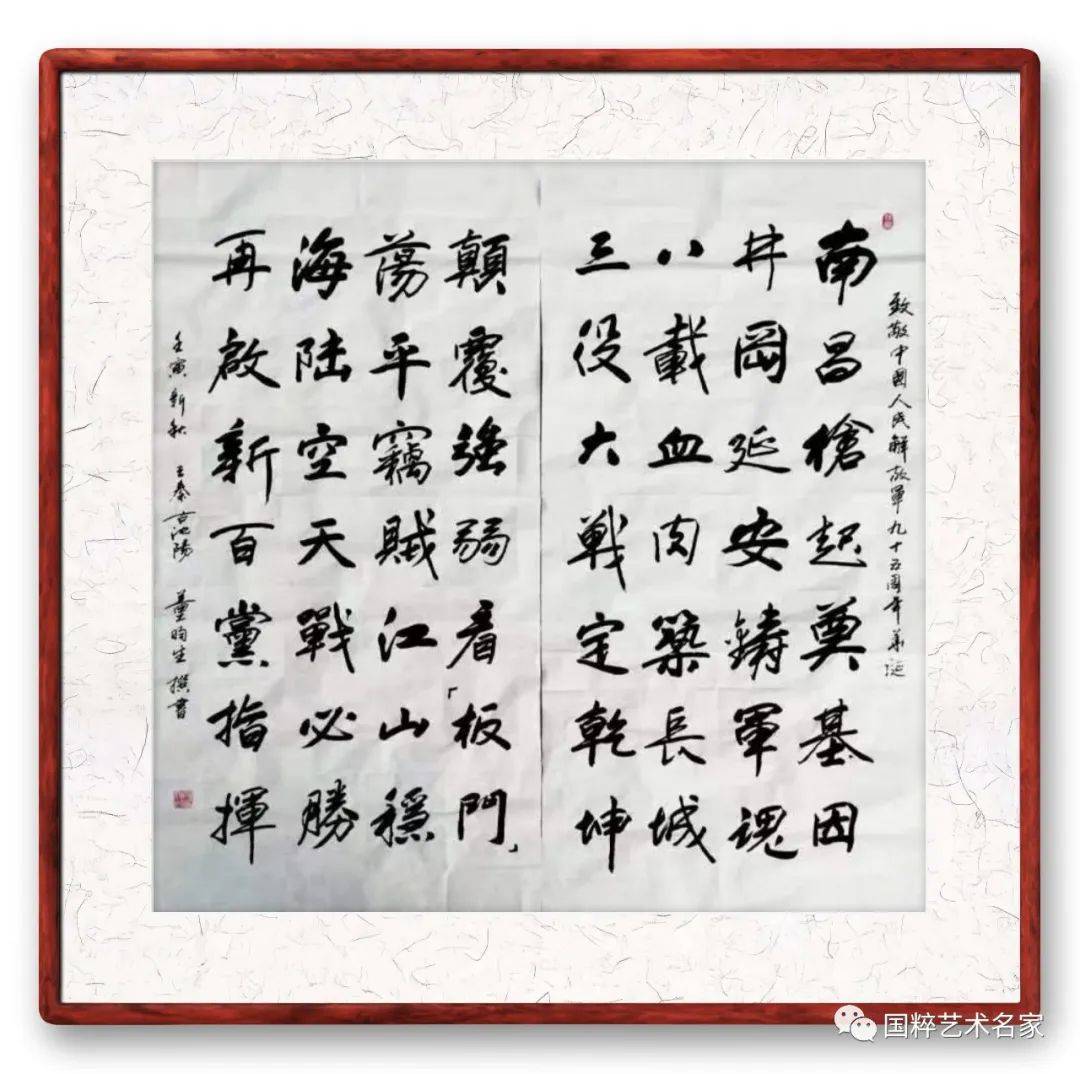 致敬中國人民解放軍九十五周年華诞
南昌槍起奠基因
井岡延安鑄軍魂
八載血肉築長城
三役大戰定乾坤
顛覆強弱看「板門」
蕩平竊賊江山穩
海陆空天戰必勝
再啟新百黨指揮
壬寅新秋 古池陽 董昀生撰書
国粹艺术名家